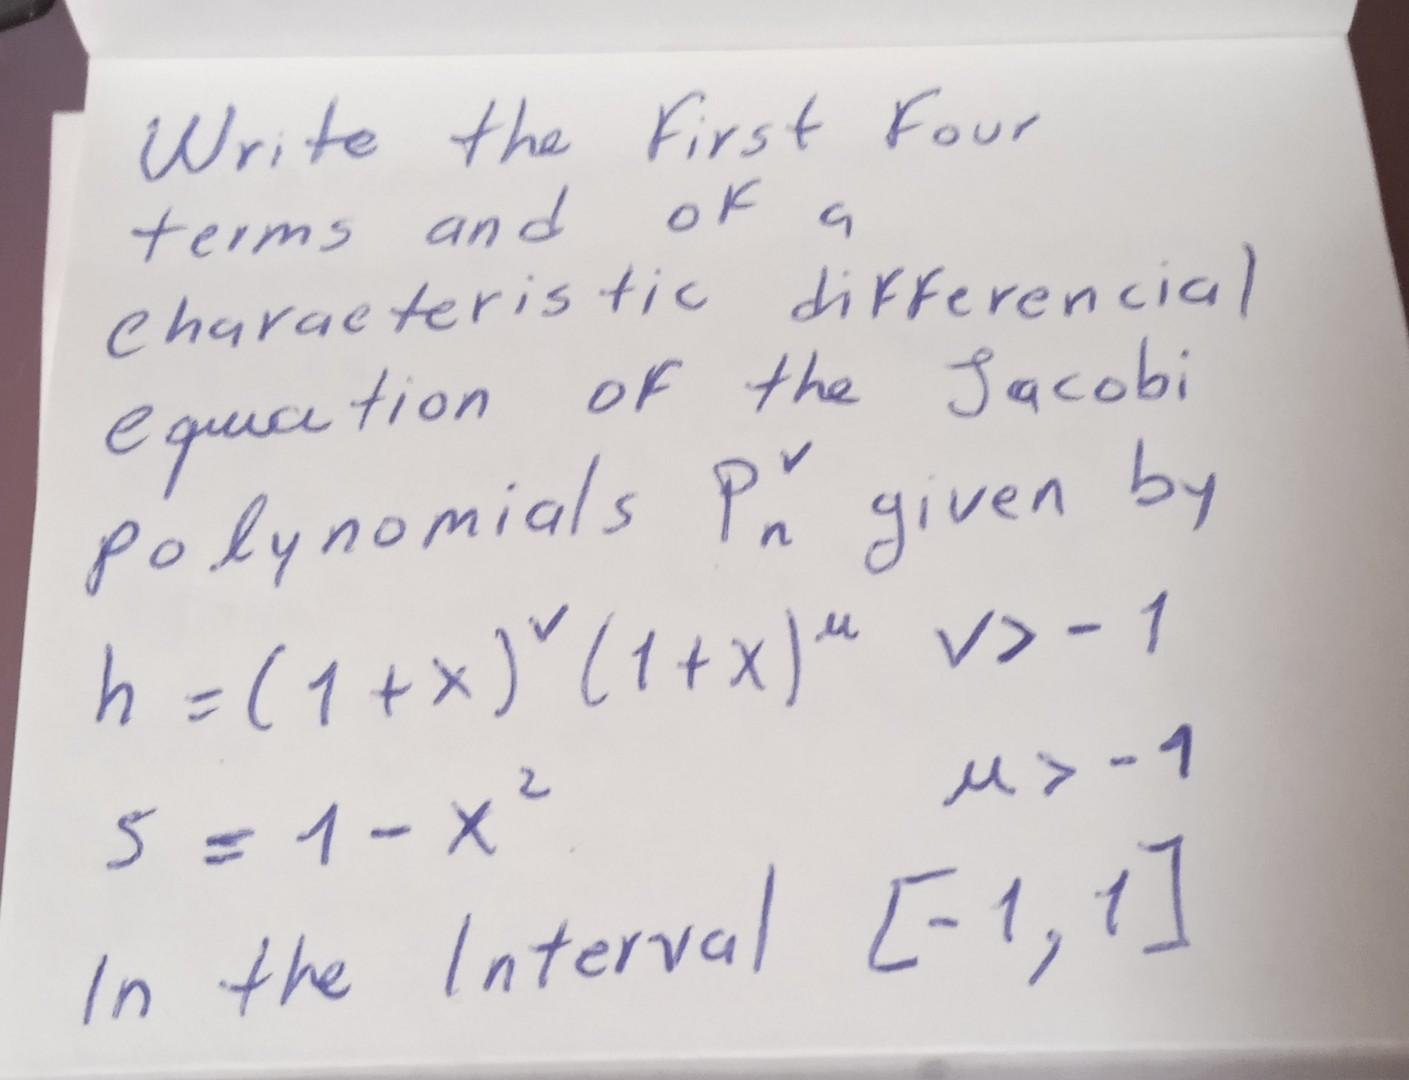 Write the first four
terms and of a
characteristic differencial
equation of the Jacobi
polynomials Pₙᵛ given by
h = (1+x)^ν (1+x)^μ ν > -1
s = 1 - x² μ > -1
In the Interval [-1, 1]